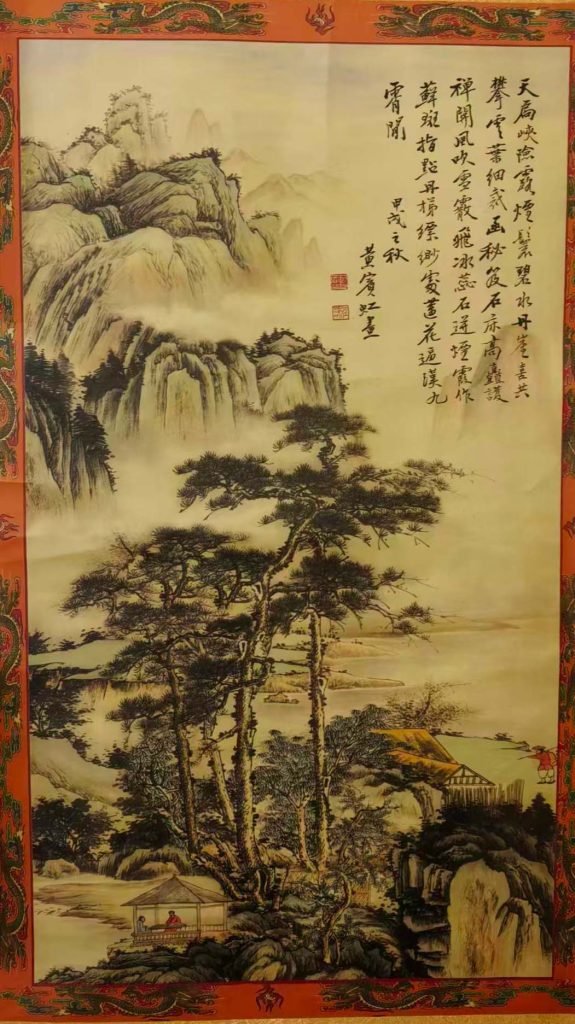 天扃峡险露烟鬟碧水丹崖喜共
攀雲葉細裁函秘笈石床高矗護
禪關風吹雪霰飛冰蕊石迸煙霞作
蘚斑指點丹梯縹緲處蓮花逼漢九
霄間
甲戌之秋
黃賓虹畫